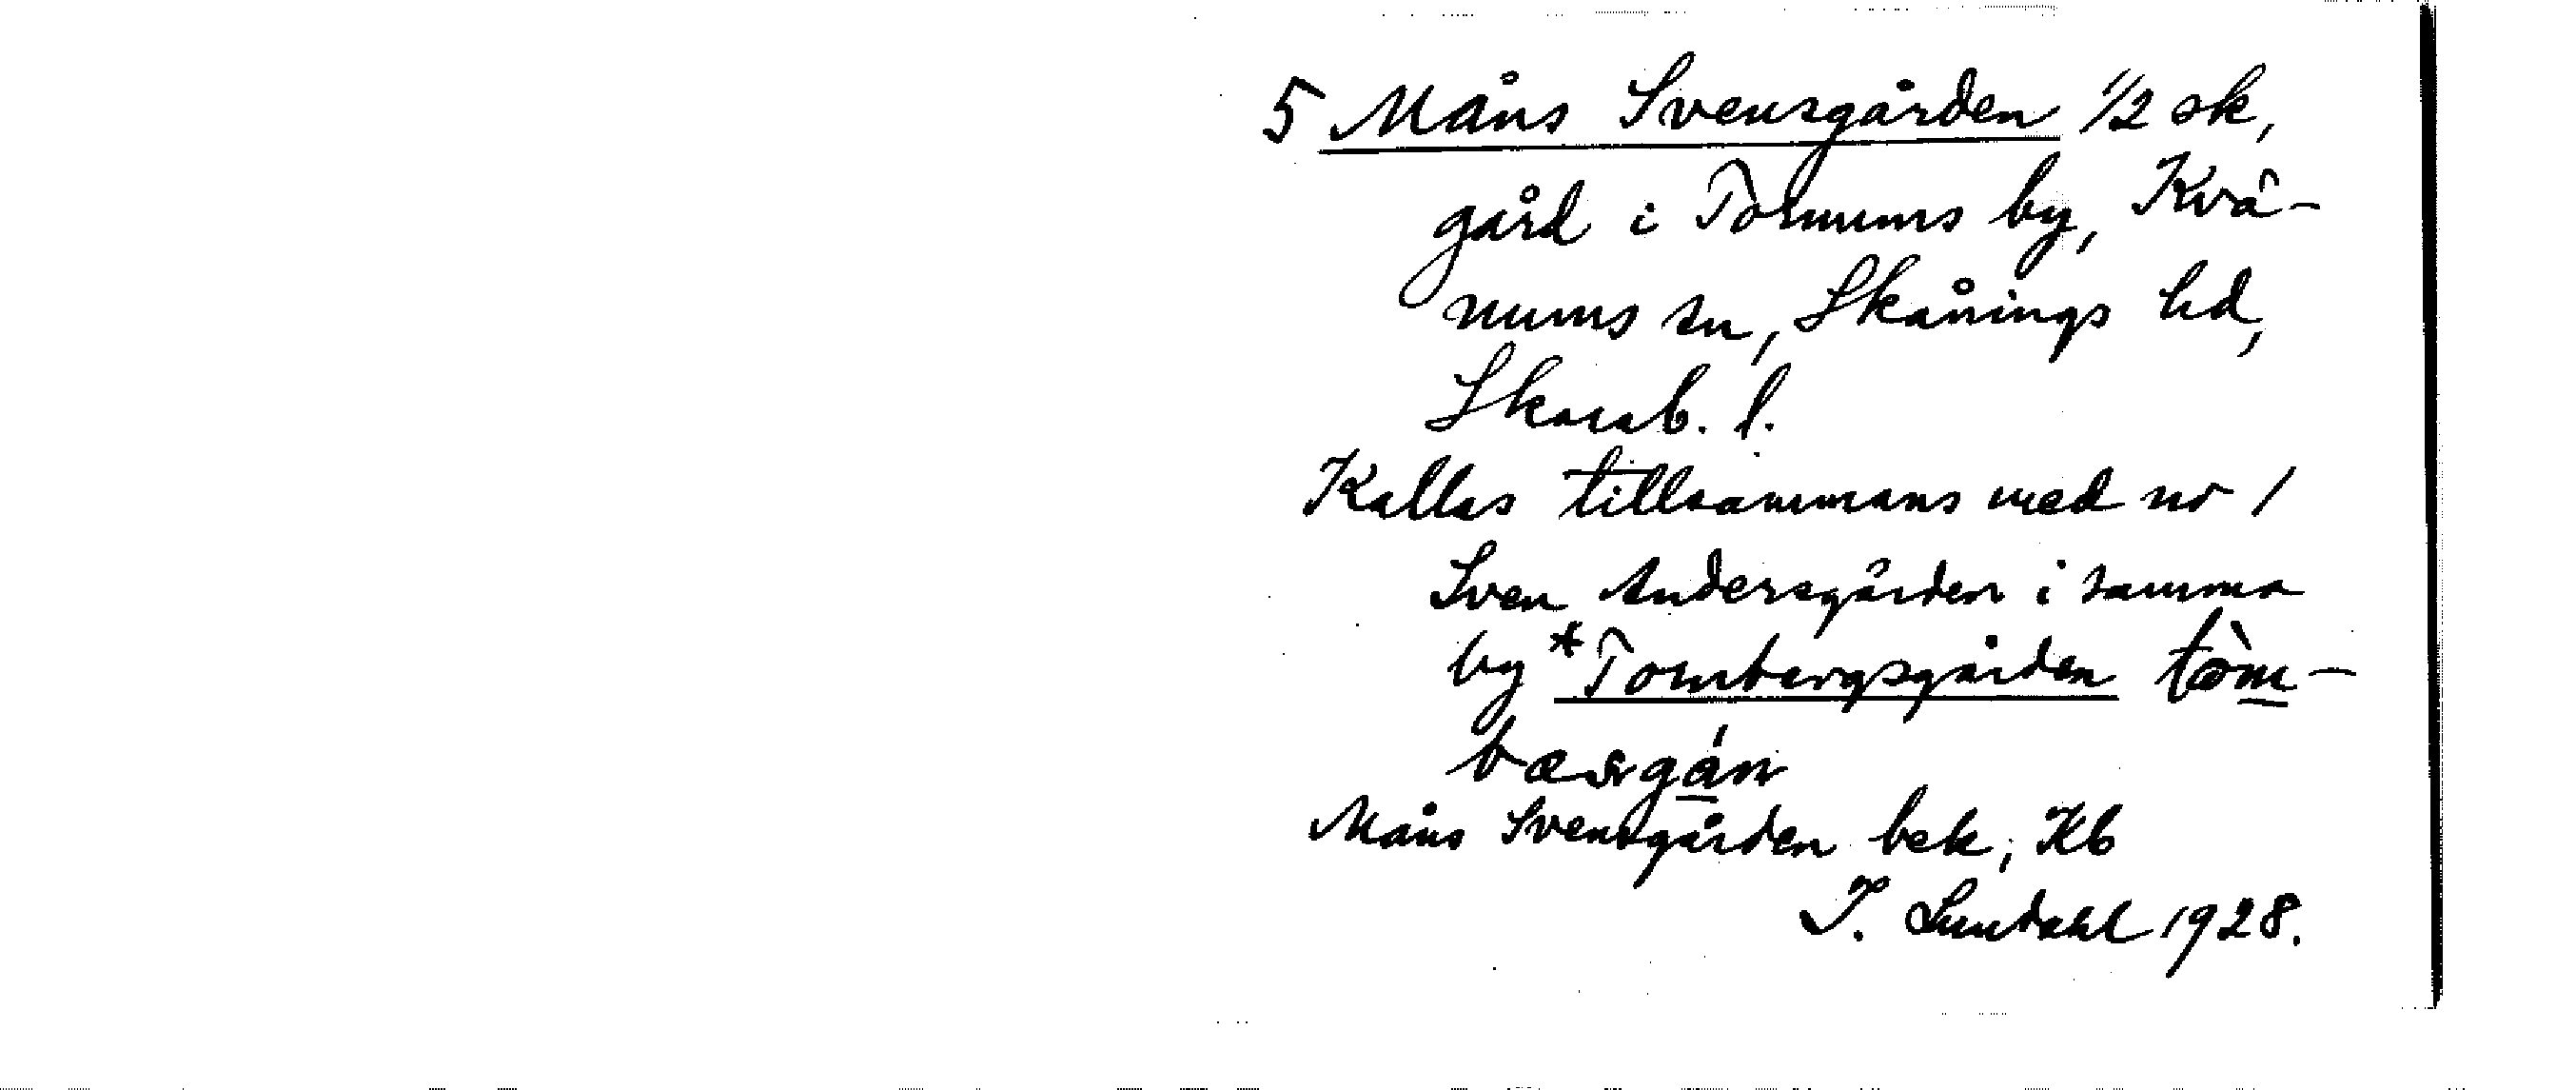 5 Måns Svensgården 1/2 sk,
gård i Tormums by, Kvä-
nums sn, Skånings hd,
Skarab. l.
Kallas tillsammans med nr 1
Sven Andersgården i samma
by *Tombergsgården tòm-
bærgán
Måns Svensgården bek, Kb
I. Lundahl 1928.